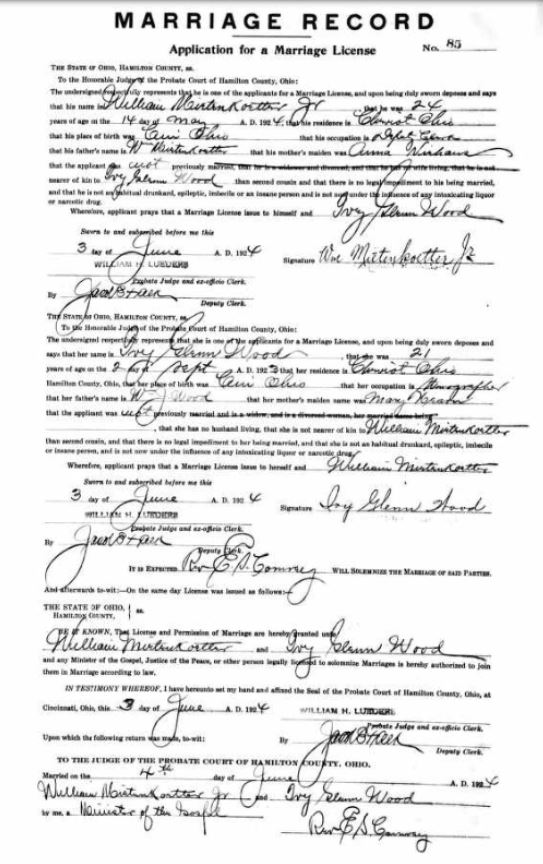 MARRIAGE RECORD
Application for a Marriage License No. 85
THE STATE OF OHIO, HAMILTON COUNTY, ss.
To the Honorable Judge of the Probate Court of Hamilton County, Ohio:
The undersigned respectfully represents that he is one of the applicants for a Marriage License, and upon being duly sworn deposes and says
that his name is William Mirtenkoetter Jr that he was 24
years of age on the 14 day of May A. D. 1924, that his residence is Cheviot Ohio
that his place of birth was Ohio that his occupation is Depot
that his father's name is W Mirtenkoetter that his mother's maiden was Anna
that the applicant was not previously married, that he is a widower and divorced, and that he has no wife living, that he is not
nearer of kin to Ivy Glenn Wood than second cousin and that there is no legal impediment to his being married,
and that he is not an habitual drunkard, epileptic, imbecile or an insane person and is not now under the influence of any intoxicating liquor
or narcotic drug.
Wherefore, applicant prays that a Marriage License issue to himself and Ivy Glenn Wood
Sworn to and subscribed before me this
3 day of June A. D. 1924
WILLIAM H. LUEDERS Signature Wm Mirtenkoetter Jr
Probate Judge and ex-officio Clerk.
By Jacob Haen
Deputy Clerk.
THE STATE OF OHIO, HAMILTON COUNTY, ss.
To the Honorable Judge of the Probate Court of Hamilton County, Ohio:
The undersigned respectfully represents that she is one of the applicants for a Marriage License, and upon being duly sworn deposes and
says that her name is Ivy Glenn Wood, that she was 21
years of age on the 2 day Sept A. D. 1923 that her residence is Cheviot Ohio
Hamilton County, Ohio, that her place of birth was Ohio that her occupation is Stenographer
that her father's name is W J Wood that her mother's maiden name was Mary
that the applicant was not previously married and is a widow, and is a divorced woman, her married name being
, that she has no husband living, that she is not nearer of kin to William Mirtenkoetter
than second cousin, and that there is no legal impediment to her being married, and that she is not an habitual drunkard, epileptic, imbecile
or insane person, and is not now under the influence of any intoxicating liquor or narcotic drug.
Wherefore, applicant prays that a Marriage License issue to herself and William Mirtenkoetter
Sworn to and subscribed before me this
3 day of June A. D. 1924
WILLIAM H. LUEDERS Signature Ivy Glenn Wood
Probate Judge and ex-officio Clerk.
By Jacob Haen
Deputy Clerk.
IT IS EXPECTED Rev E. S. Conrey WILL SOLEMNIZE THE MARRIAGE OF SAID PARTIES.
And afterwards to-wit:—On the same day License was issued as follows:—
THE STATE OF OHIO,
HAMILTON COUNTY, ss.
BE IT KNOWN, That License and Permission of Marriage are hereby granted unto
William Mirtenkoetter and Ivy Glenn Wood
and any Minister of the Gospel, Justice of the Peace, or other person legally licensed to solemnize Marriages is hereby authorized to join
them in Marriage according to law.
IN TESTIMONY WHEREOF, I have hereunto set my hand and affixed the Seal of the Probate Court of Hamilton County, Ohio, at
Cincinnati, Ohio, this 3 day of June A. D. 1924 WILLIAM H. LUEDERS
Probate Judge and ex-officio Clerk.
Upon which the following return was made, to-wit: By Jacob Haen
Deputy Clerk.
TO THE JUDGE OF THE PROBATE COURT OF HAMILTON COUNTY, OHIO.
Married on the 4th day of June A. D. 1924
William Mirtenkoetter Jr and Ivy Glenn Wood
by me, a Minister of the Gospel
Rev E. S. Conrey